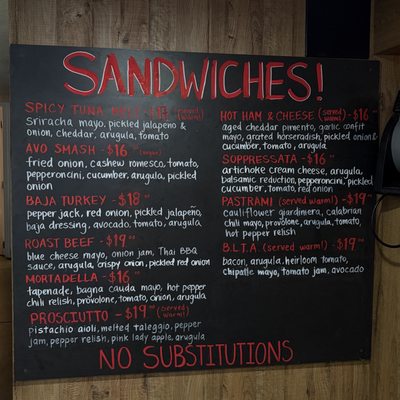 SANDWICHES!
SPICY TUNA MELT - $18 (served warm!)
sriracha mayo, pickled jalapeño &
onion, cheddar, arugula, tomato
AVO SMASH - $16 (vegan)
fried onion, cashew romesco, tomato,
pepperoncini, cucumber, arugula, pickled
onion
BAJA TURKEY - $18
pepper jack, red onion, pickled jalapeño,
baja dressing, avocado, tomato, arugula
ROAST BEEF - $19
blue cheese mayo, onion jam, Thai BBQ
sauce, arugula, crispy onion, pickled red onion
MORTADELLA - $16
tapenade, bagna cauda mayo, hot pepper
chili relish, provolone, tomato, onion, arugula
PROSCIUTTO - $19 (served warm!)
pistachio aioli, melted taleggio, pepper
jam, pepper relish, pink lady apple, arugula
HOT HAM & CHEESE (served warm!) - $16
aged cheddar pimento, garlic confit
mayo, grated horseradish, pickled onion &
cucumber, tomato, arugula
SUPPRESSATA - $16
artichoke cream cheese, arugula,
balsamic reduction, pepperoncini, pickled
cucumber, tomato, red onion
PASTRAMI (served warm!) - $19
cauliflower giardiniera, calabrian
chili mayo, provolone, arugula, tomato,
hot pepper relish
B.L.T.A. (served warm!) - $19
bacon, arugula, heirloom tomato,
chipotle mayo, tomato jam, avocado
NO SUBSTITUTIONS